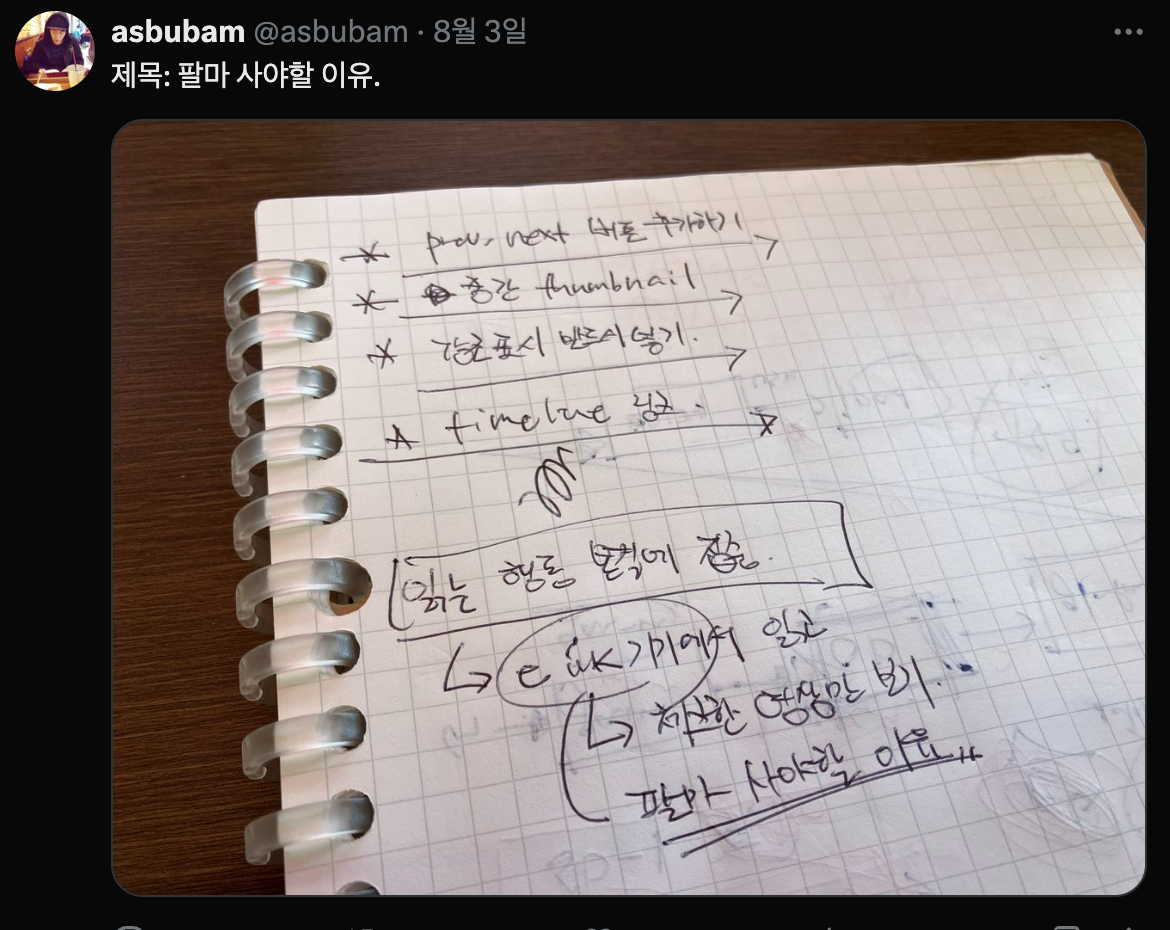 asbubam @asbubam · 8월 3일
제목: 팔마 사야할 이유.
prev, next 버튼 추가하기
중간 thumbnail
강조표시 반드시 넣기.
timeline 링크.
읽는 행동 본질에 집중.
e ink 기기에서 읽고
체크한 영상만 보기.
팔마 사야할 이유